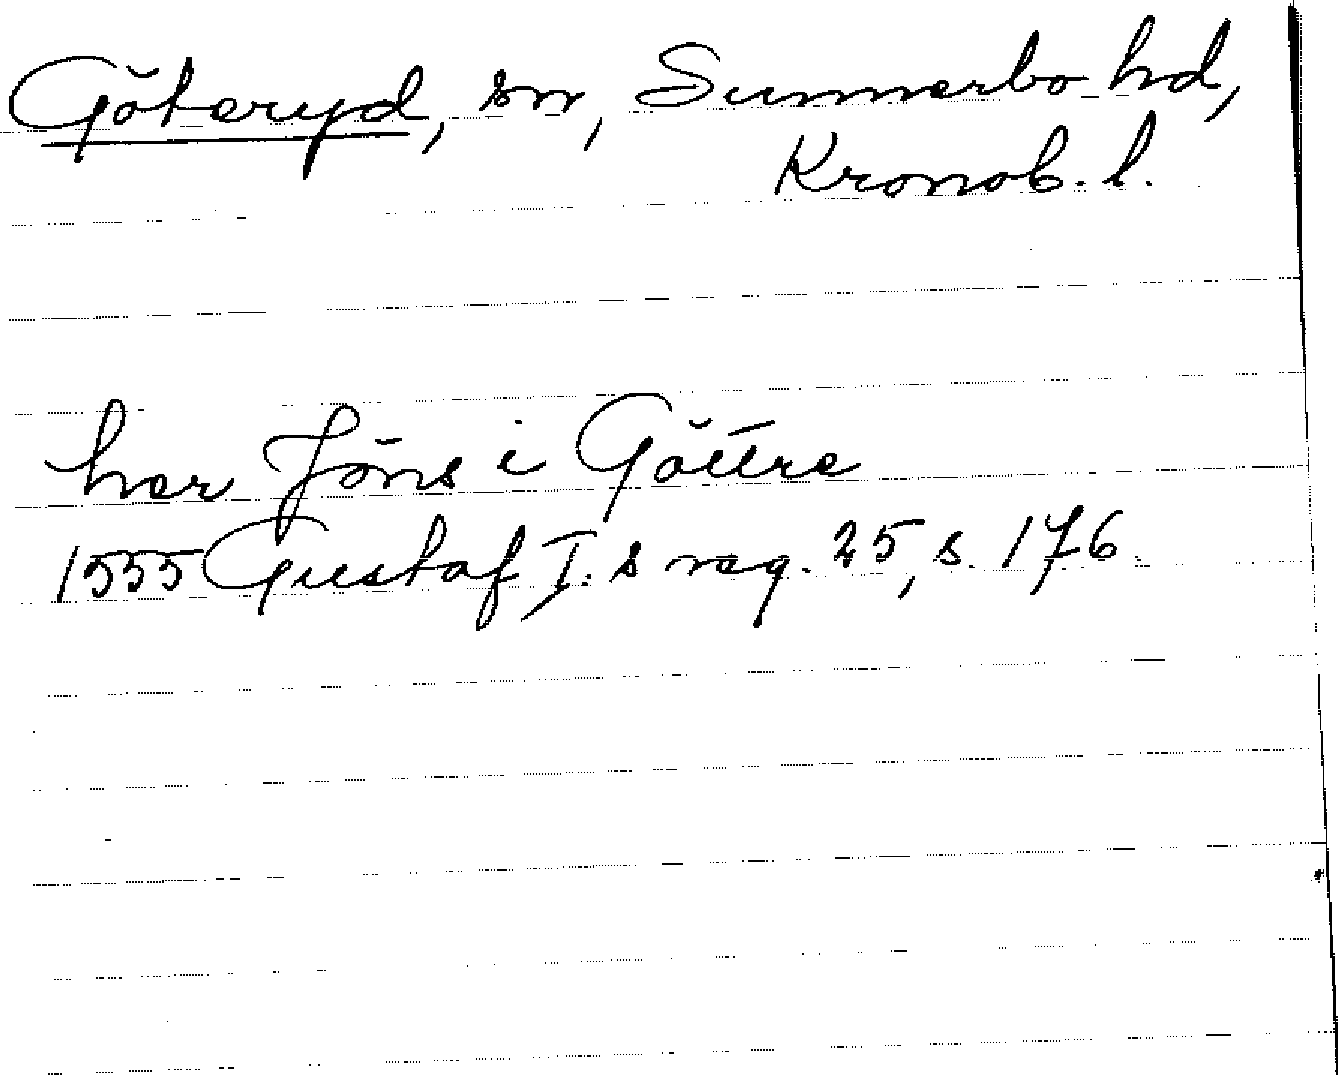 Göteryd, sn, Sunnerbo hd,
Kronob. l.
her Jöns i Göttre
1555 Gustaf I.s reg. 25, s. 176.